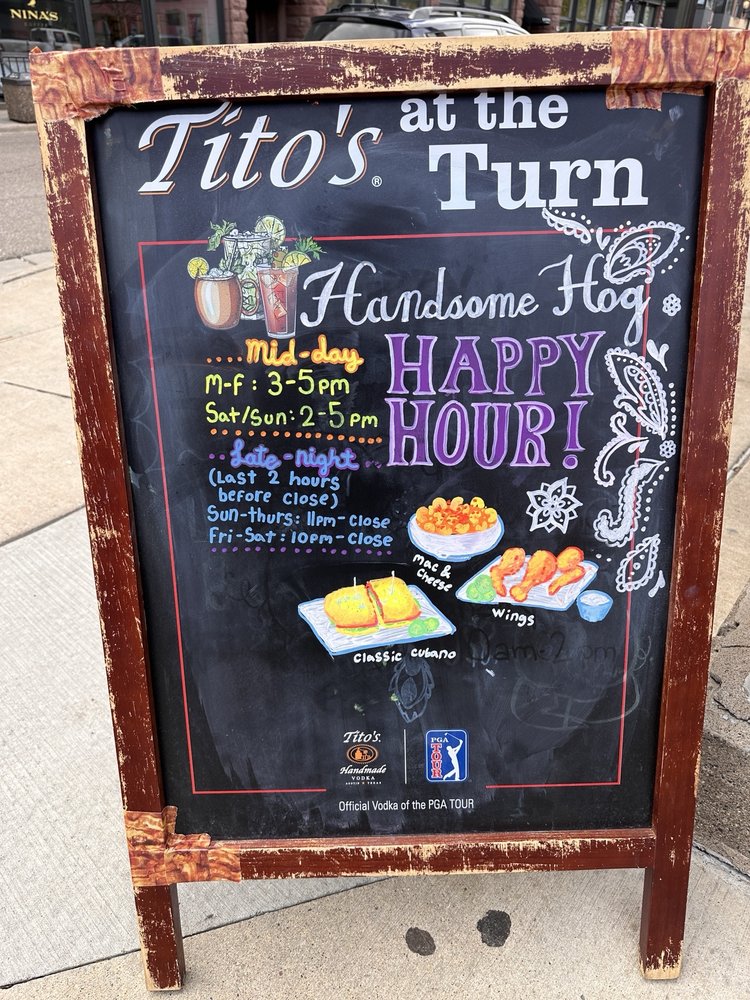 NINA'S
Tito's® at the
Turn
Handsome Hog
HAPPY
HOUR!
Mid-day
M-F: 3-5pm
Sat/Sun: 2-5pm
Late-night
(Last 2 hours
before close)
Sun-thurs: 11pm-close
Fri-Sat: 10pm-close
Mac &
Cheese
Wings
Classic Cubano
Tito's.
Handmade
VODKA
PGA
TOUR
Official Vodka of the PGA TOUR